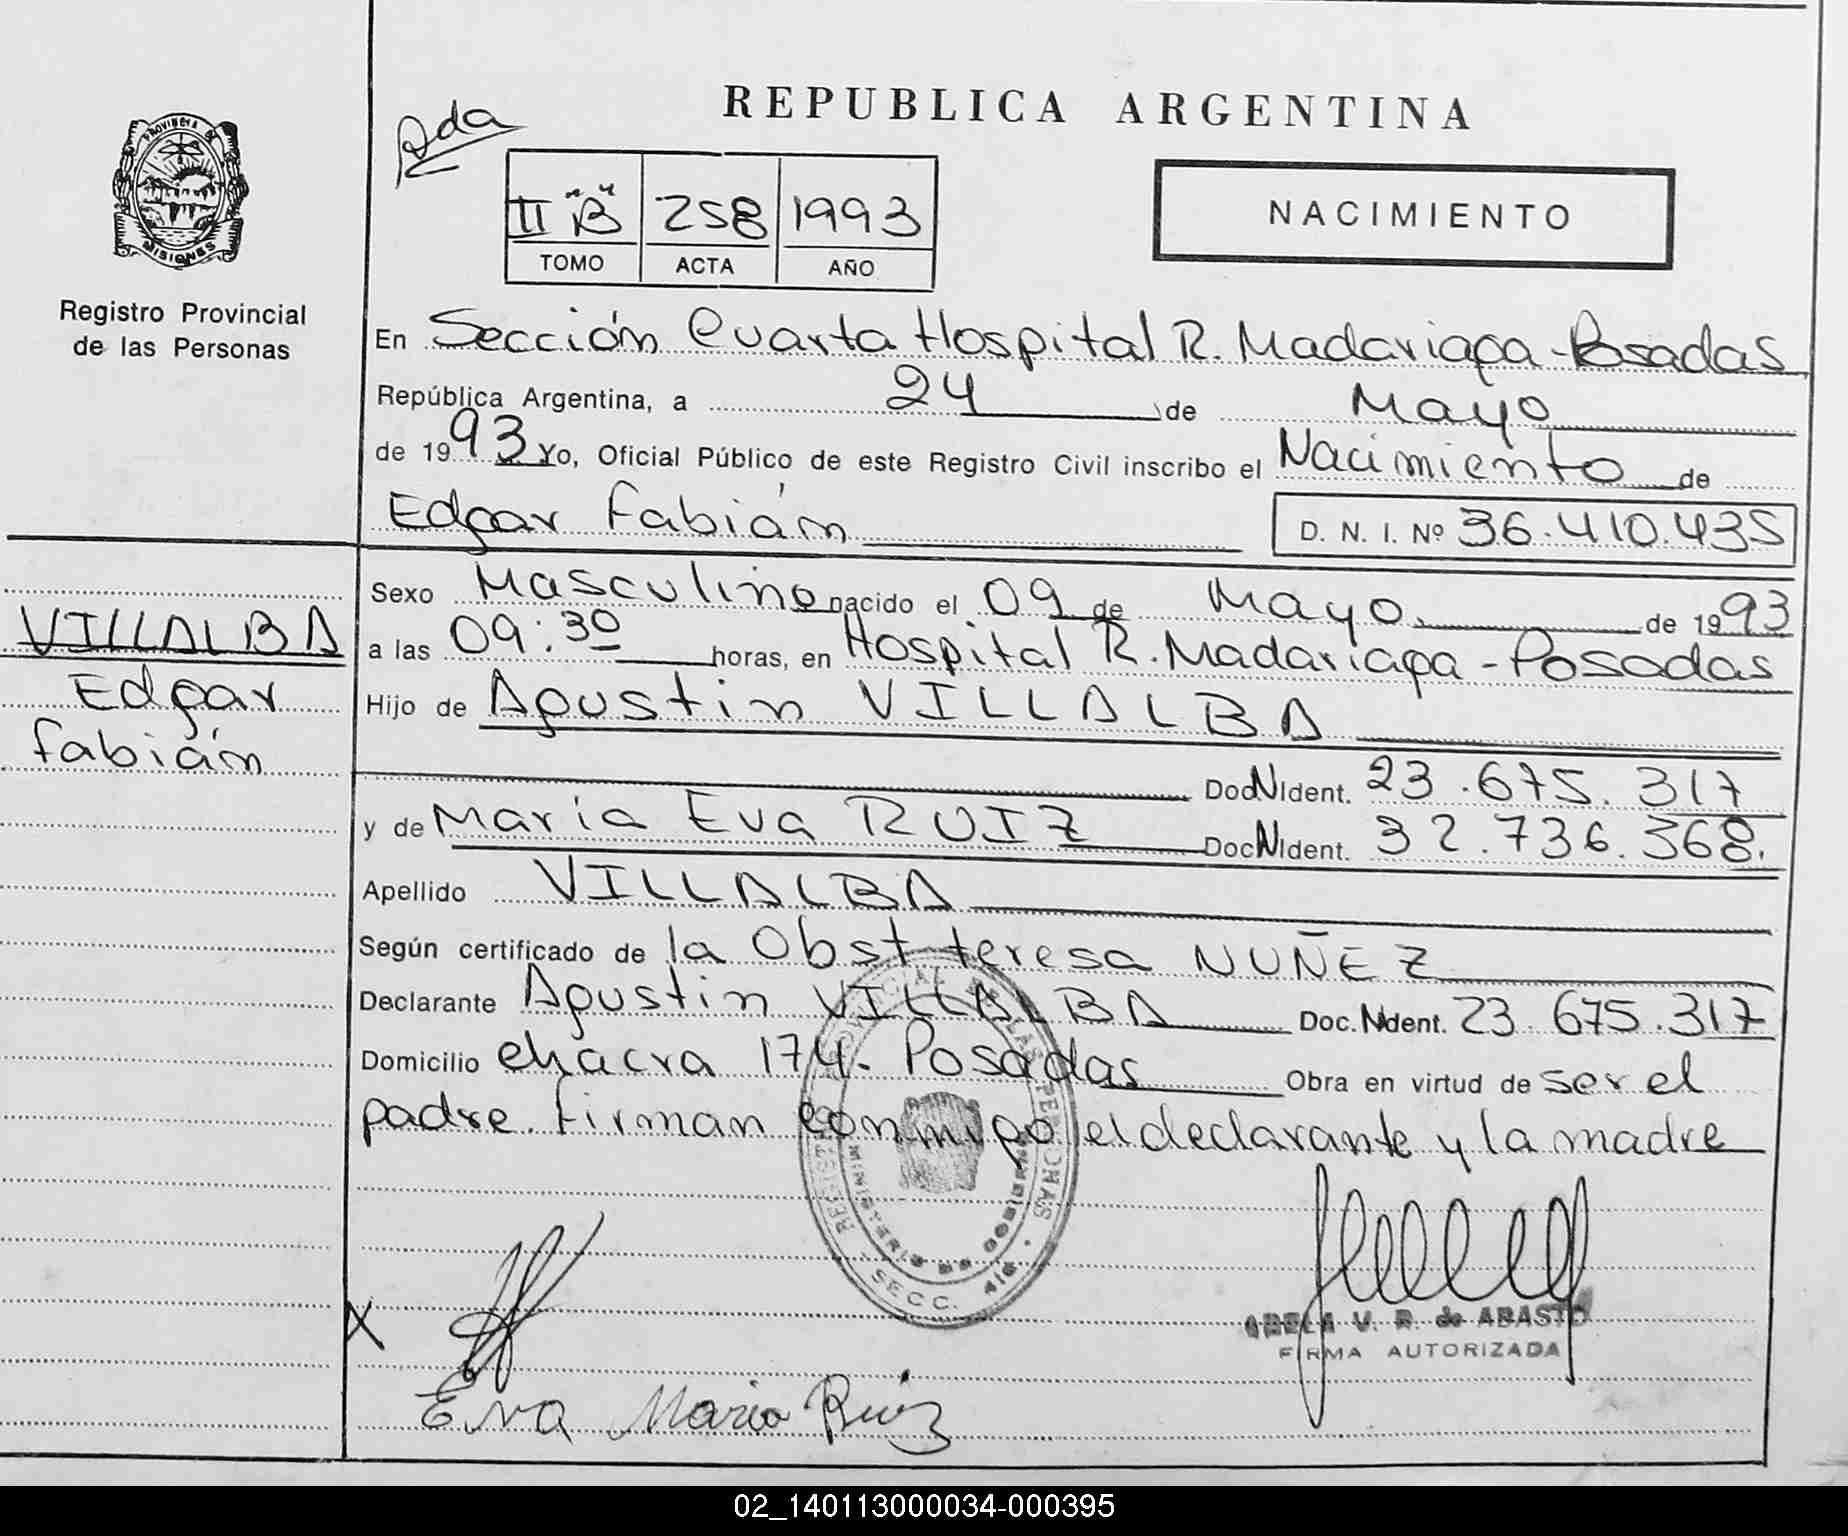 REPUBLICA ARGENTINA
2da
PROVINCIA DE
MISIONES
II "B" 258 1993
TOMO ACTA AÑO
NACIMIENTO
Registro Provincial
de las Personas
En Sección Cuarta Hospital R. Madariaga - Posadas
República Argentina, a 24 de Mayo
de 1993 Yo, Oficial Público de este Registro Civil inscribo el Nacimiento de
Edgar Fabián D. N. I. Nº 36.410.435
VILLALBA
Edgar
Fabián
Sexo Masculino nacido el 09 de Mayo de 1993
a las 09:30 horas, en Hospital R. Madariaga - Posadas
Hijo de Agustin VILLALBA
Doc. N Ident. 23.675.317
y de Maria Eva RUIZ Doc N Ident. 32.736.368.
Apellido VILLALBA
Según certificado de la Obst teresa NUÑEZ
Declarante Agustin VILLALBA Doc. N Ident. 23.675.317
Domicilio chacra 174. Posadas Obra en virtud de ser el
padre. firman conmigo el declarante y la madre
REGISTRO PROVINCIAL DE LAS PERSONAS
MINISTERIO DE GOBIERNO
SECC. 4ta
X
V. R. de ABASTO
FIRMA AUTORIZADA
Eva Maria Ruiz
02_140113000034-000395